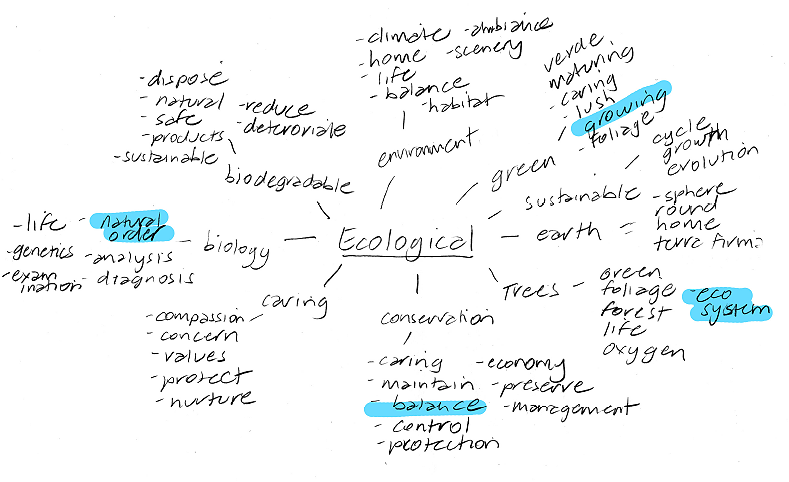 -climate -ambiance
-home -scenery
-life
-balance
-habitat
environment
verde
maturing
-caring
-lush
growing
-foliage
green
cycle
growth
evolution
sustainable
-sphere
round
home
terra firma
earth
Green
foliage -eco
forest system
life
oxygen
Trees
conservation
-caring -economy
-maintain -preserve
-balance -management
-control
-protection
caring
-compassion
-concern
-values
-protect
-nurture
biology
-life -natural
order
-genetics -analysis
-exam -diagnosis
ination
biodegradable
-dispose
-natural -reduce
-safe -deteroriate
-products
-sustainable
Ecological